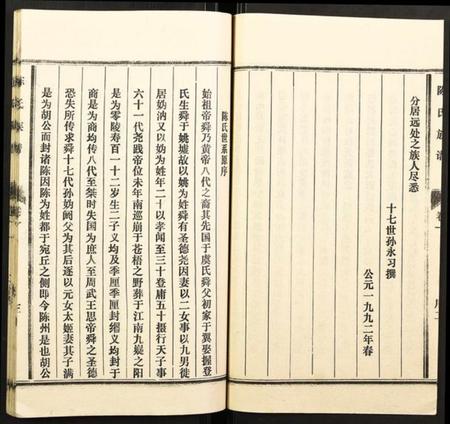 陈氏族谱
卷一
分居远处之族人尽悉
十七世孙永习撰
公元一九九二年春
陈氏世系源序
始祖帝舜乃黄帝八代之裔其先国于虞氏舜父初家于冀娶握登
氏生舜于姚墟故以姚为姓舜有圣德尧因妻以二女事以九男徙
居妫汭又以妫为姓年二十以孝闻至三十登庸五十摄行天子事
六十一代尧践帝位未年南巡崩于苍梧之野葬于江南九嶷之阳
是为零陵寿百一十二岁生二子义均及季厘季厘封缗义均封于
商是为商均传八代至桀时失国为庶人至周武王思帝舜之圣德
恐失所传求舜十七代孙妫阏父为其后遂以元女太姬妻其子满
是为胡公而封诸陈因陈为姓都于宛丘之侧即今陈州是也胡公